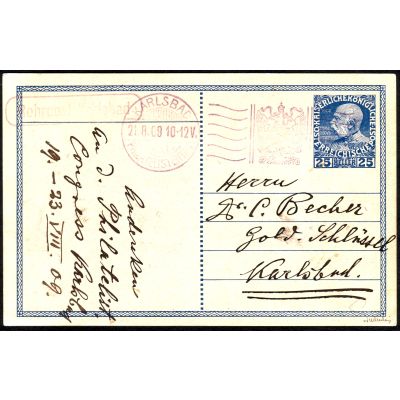 KARLSBAD
21.8.09 10-12V.
KAISERLICHE KÖNIGLICHE
ÖSTERREICHISCHE
25 HELLER 25
Andenken
an d. Philatelist.
Congress Karlsbad
19.-23. VIII. 09.
Herrn
Dr. C. Becher
Gold. Schlüssel
Karlsbad.